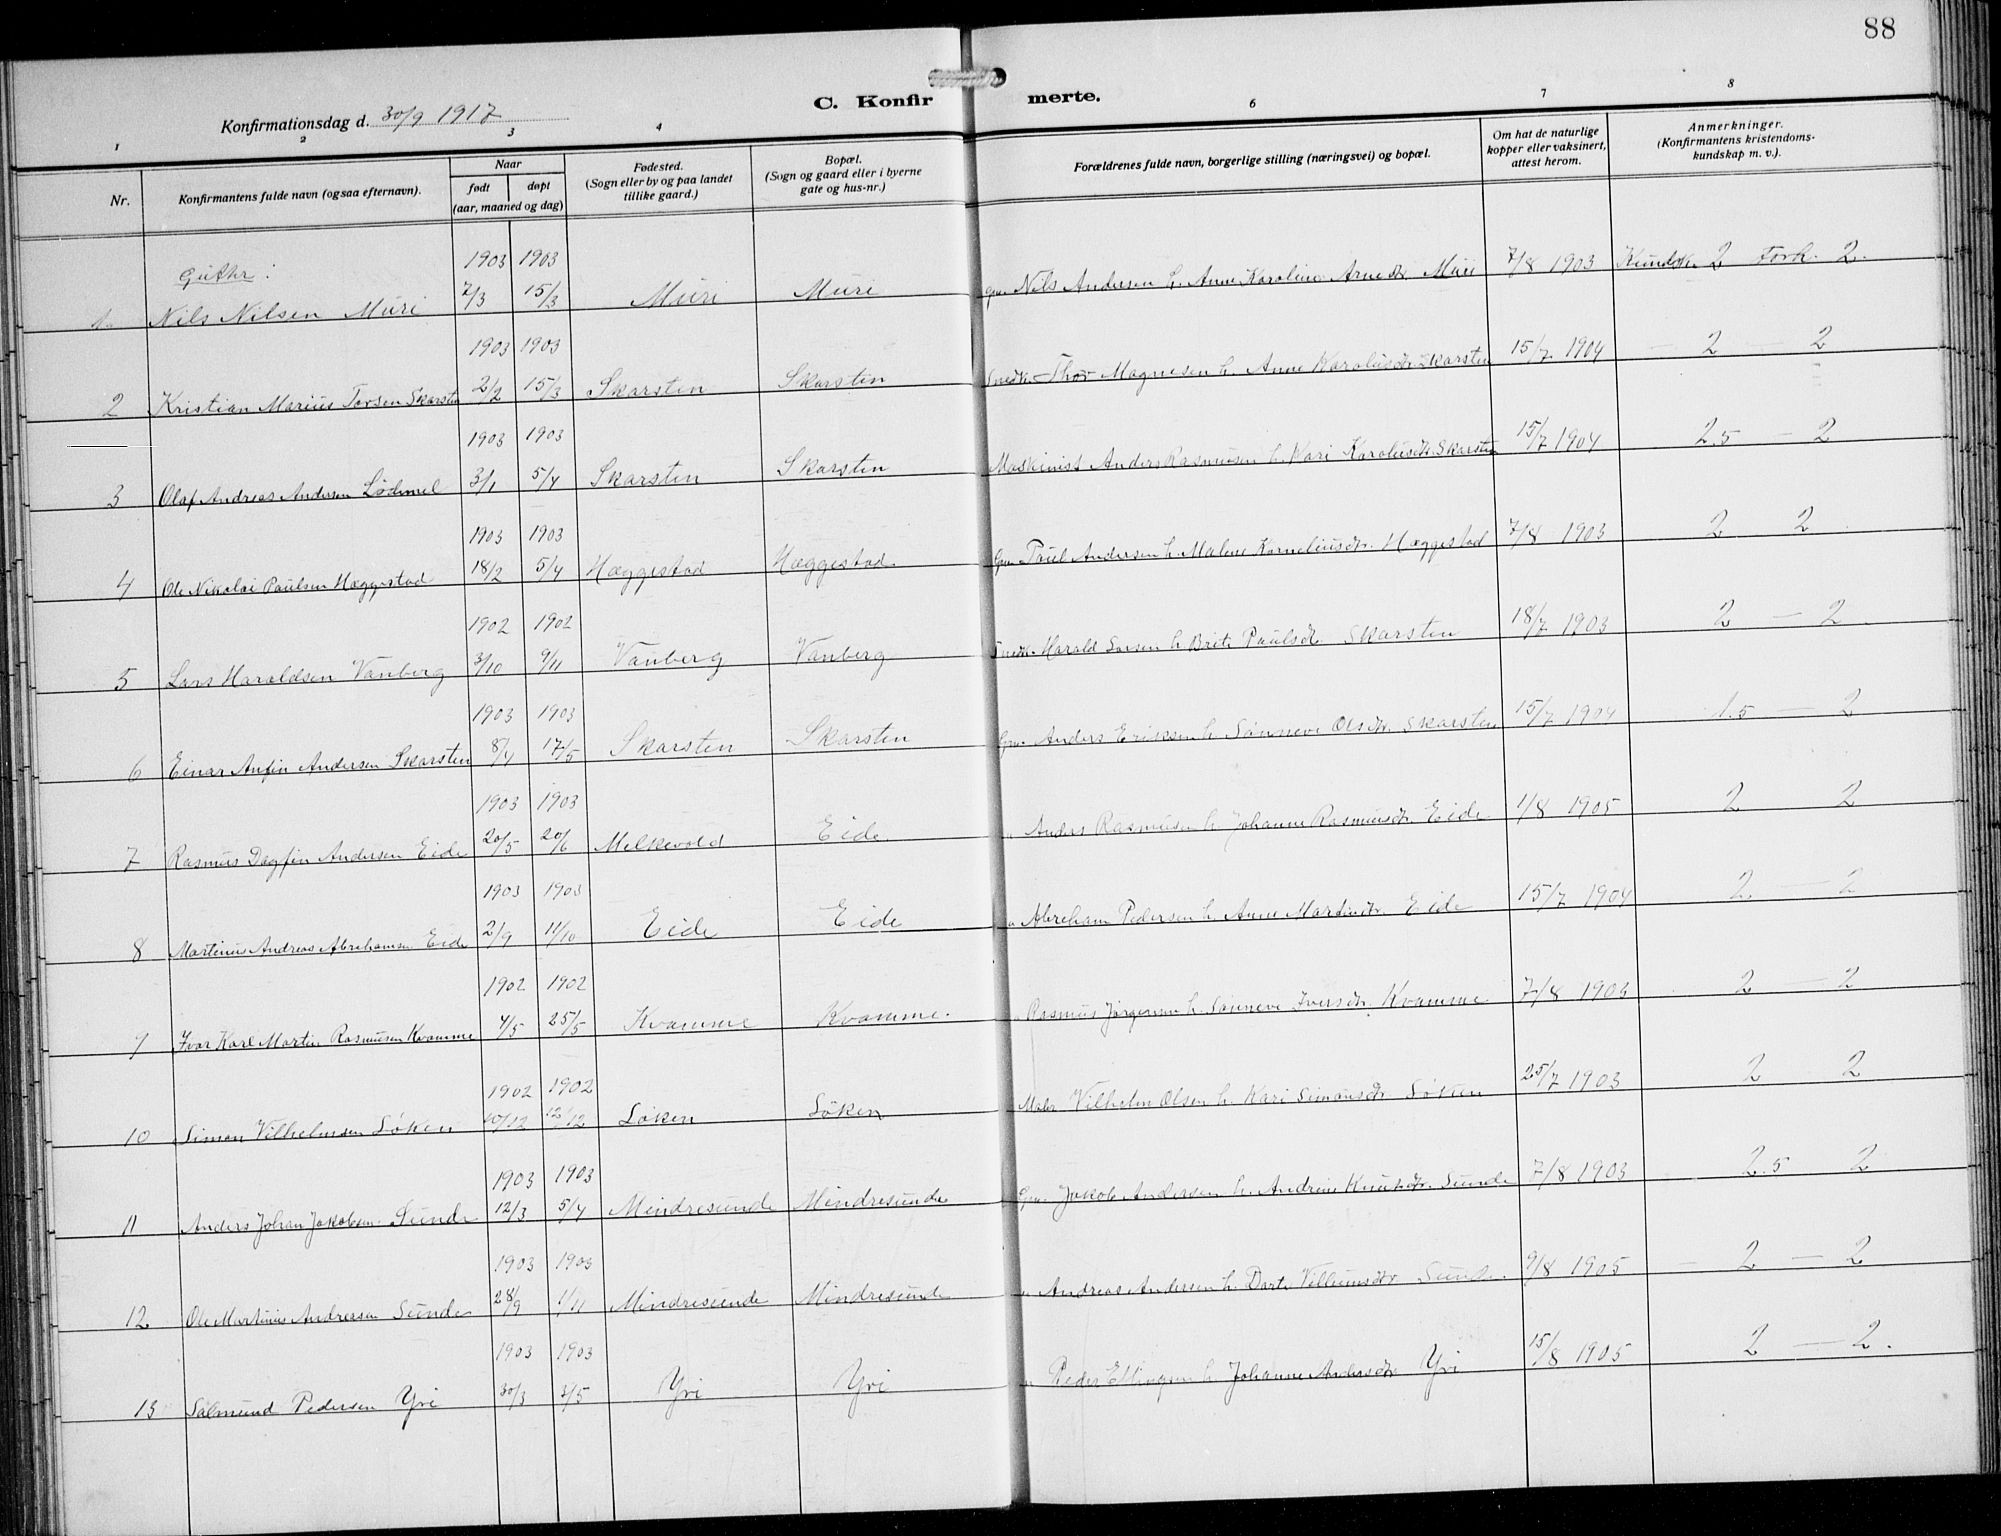 88
C. Konfirmerte.
Konfirmationsdag d. 30/9 1917
1 2 3 4 6 7 8
Nr.
Konfirmantens fulde navn (ogsaa efternavn).
Naar
født døpt
(aar, maaned og dag)
Fødested.
(Sogn eller by og paa landet
tillike gaard.)
Bopæl.
(Sogn og gaard eller i byerne
gate og hus-nr.)
Forældrenes fulde navn, borgerlige stilling (næringsvei) og bopæl.
Om hat de naturlige
kopper eller vaksinert,
attest herom.
Anmerkninger.
(Konfirmantens kristendoms-
kundskap m. v.).
Gutter:
1903 1903
1. Nils Nilsen Muri 7/3 15/3 Muri Muri Gm. Nils Andersen h. Anne Karoline Arnedtr. Muri 7/8 1903 Kundsk. 2 Forh. 2.
1903 1903
2 Kristian Marius Torsen Skarsten 2/2 15/3 Skarsten Skarsten Snedk. Thor Magnesen h. Anne Karolusdtr. Skarsten 15/7 1904 – 2 – 2
1903 1903
3 Olaf Andreas Andersen Lødemel 3/1 5/4 Skarsten Skarsten Maskinist Anders Rasmusen h. Kari Karolusdtr. Skarsten 15/7 1904 2.5 – 2
1903 1903
4 Ole Nikolai Paulsen Hæggestad 18/2 5/4 Hæggestad Hæggestad. Gm. Paul Andersen h. Malene Korneliusdtr. Hæggestad 7/8 1903 2 2
1902 1902
5 Lars Haraldsen Vanberg 3/10 9/11 Vanberg Vanberg Snedk. Harald Larsen h. Brite Paulsdtr. Skarsten 18/7 1903 2 – 2.
1903 1903
6 Einar Anfin Andersen Skarsten 8/4 17/5 Skarsten Skarsten Gm. Anders Eriksen h. Sønneve Olsdtr. Skarsten 15/7 1904 1.5 – 2
1903 1903
7 Rasmus Dagfin Andersen Eide 20/5 20/6 Melkevold Eide " Anders Rasmusen h. Johanne Rasmusdtr. Eide 1/8 1905 2 2
1903 1903
8 Martinus Andreas Abrahamsen Eide 2/9 11/10 Eide Eide " Abraham Pedersen h. Anne Martinsdtr. Eide 15/7 1904 2. – 2
1902 1902
9 Ivar Karl Martin Rasmusen Kvamme 4/5 25/5 Kvamme Kvamme. " Rasmus Jørgensen h. Sønneve Iversdtr. Kvamme 7/8 1903 2 – 2
1902 1902
10 Simon Vilhelmsen Løken 10/12 12/12 Løken Løken Maler Vilhelm Olsen h. Kari Simonsdtr. Løken 25/7 1903 2 2
1903 1903
11 Anders Johan Jakobsen Sunde 12/3 5/4 Mindresunde Mindresunde Gm. Jakob Andersen h. Andrine Knutsdtr. Sunde 7/8 1903 2.5 2
1903 1903
12 Ole Martinus Andreasen Sunde 28/9 1/11 Mindresunde Mindresunde " Andreas Andersen h. Dorte Villumsdtr. Sunde. 9/8 1905 – 2 – 2
1903 1903
13 Salmund Pedersen Yri 30/3 3/5 Yri Yri " Peder Ellingsen h. Johanne Andersdtr. Yri 15/8 1905 2 – 2.